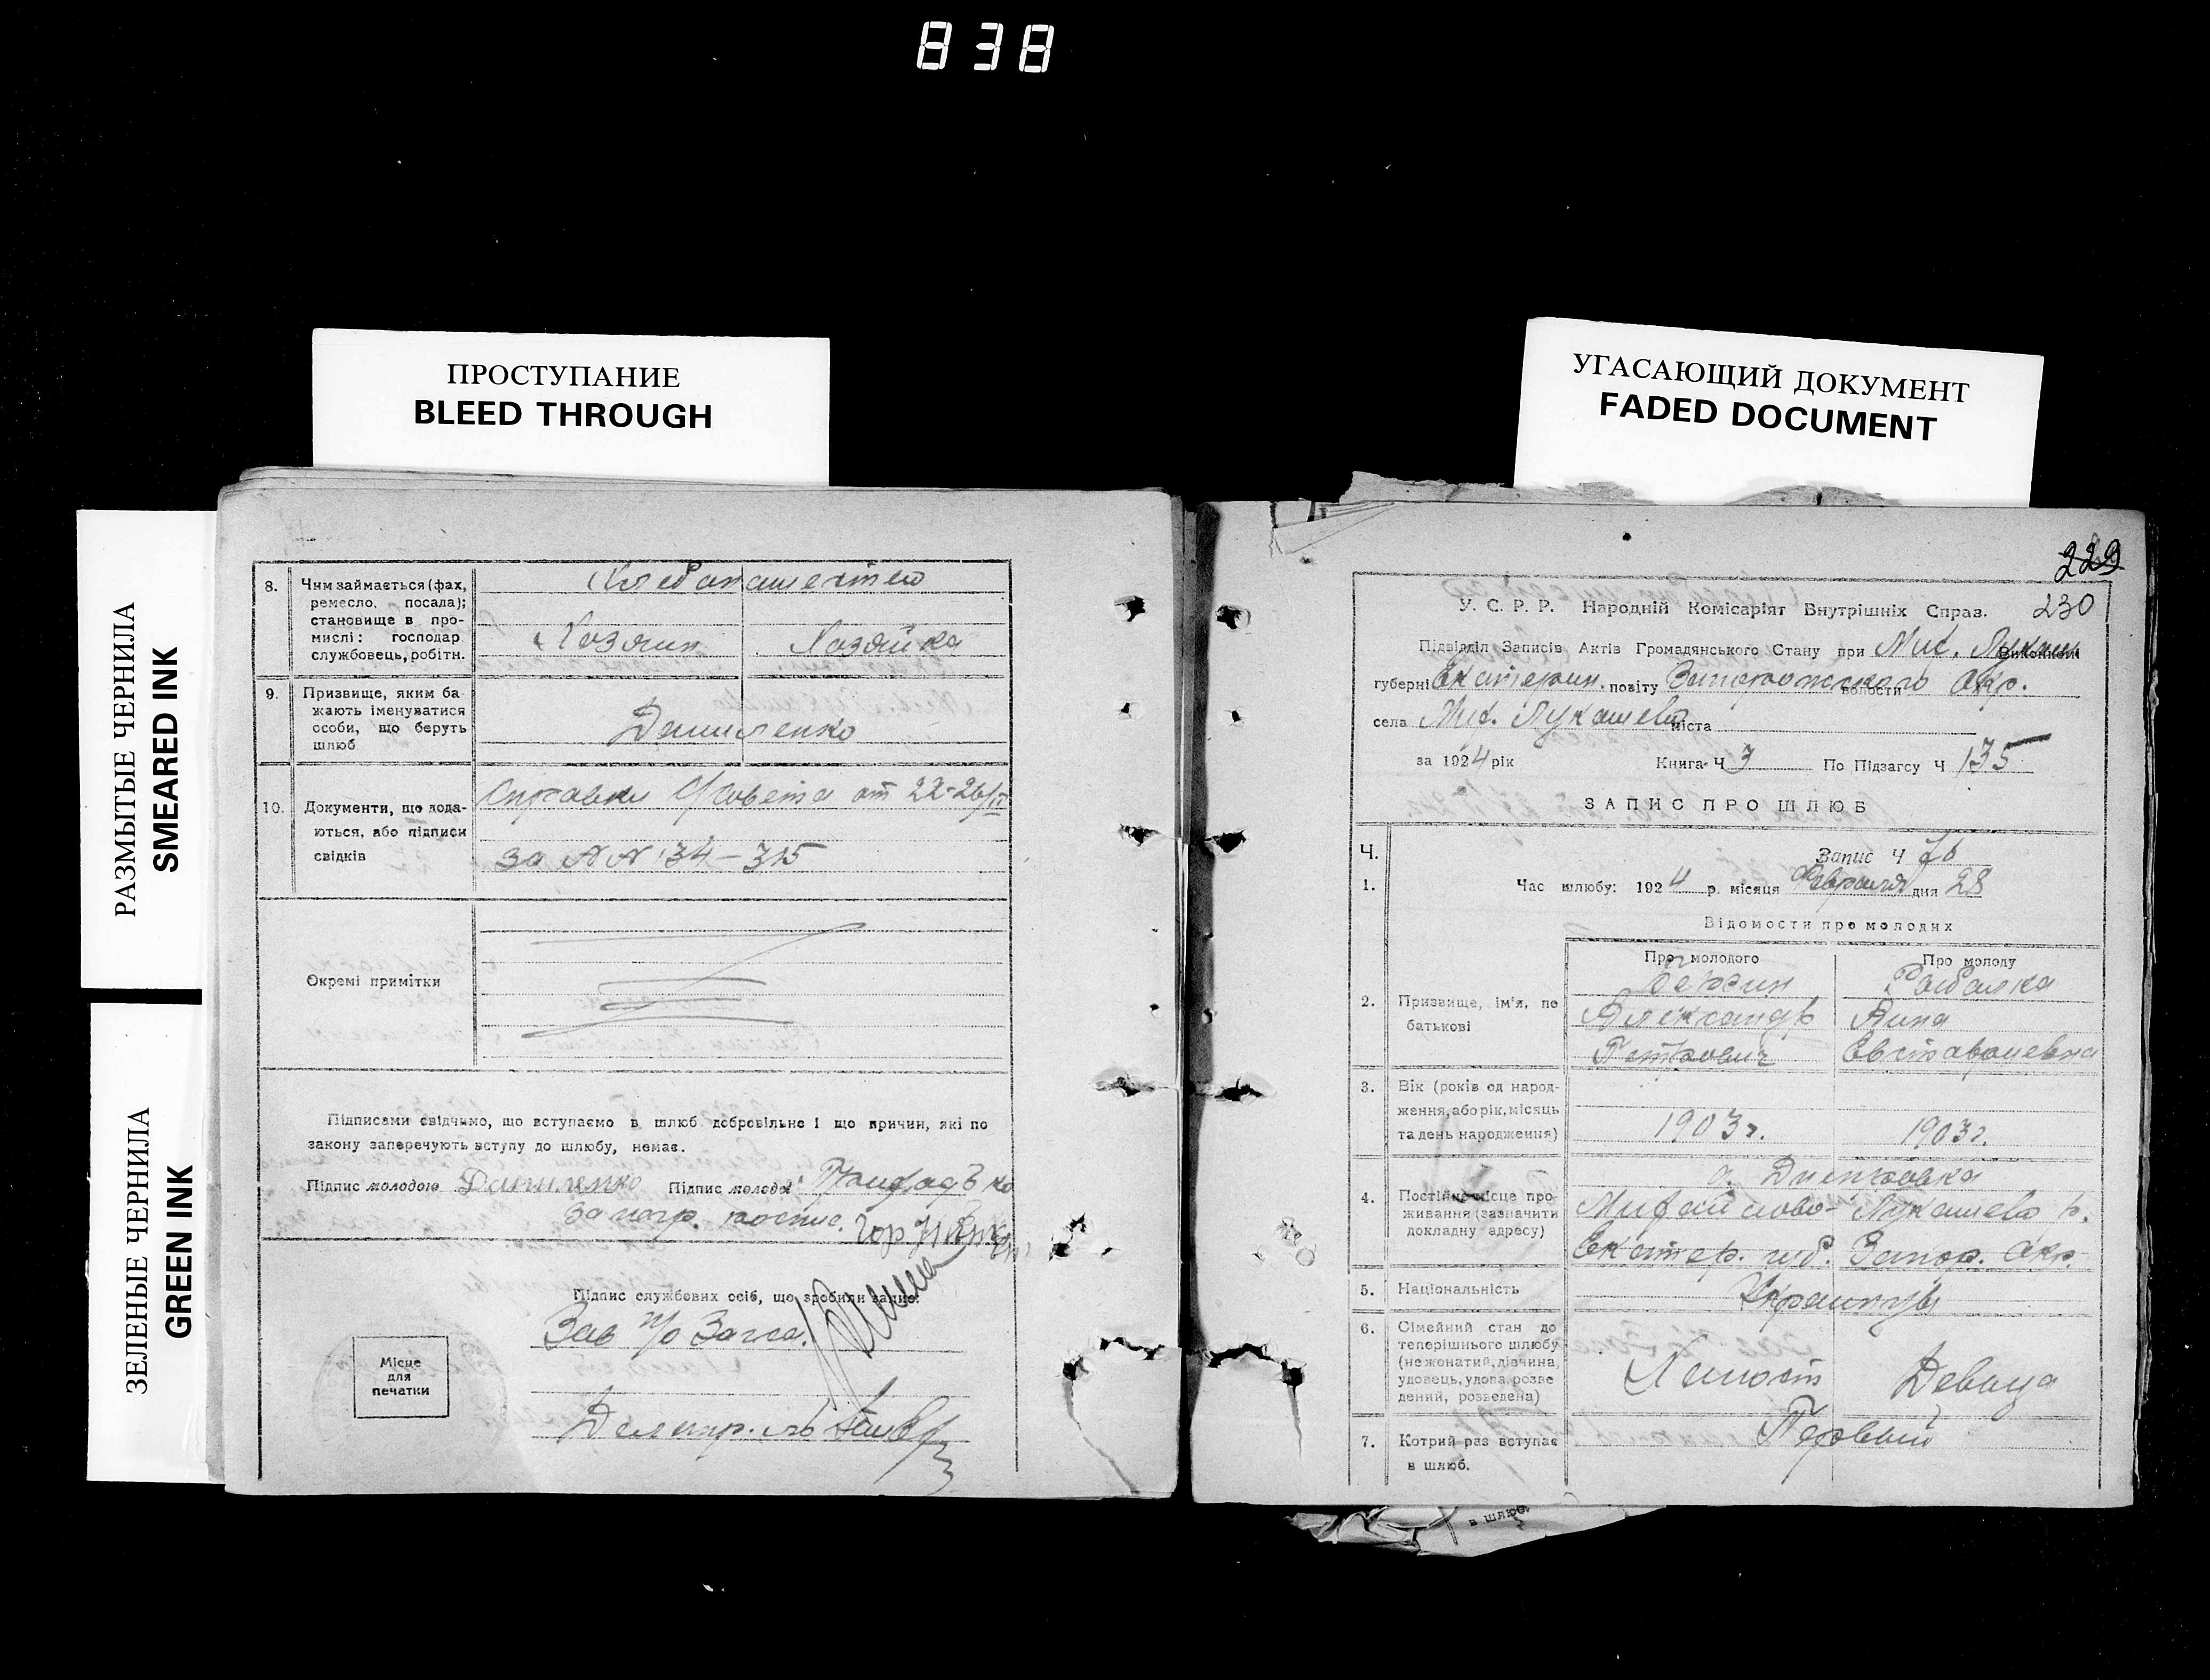 838
ПРОСТУПАНИЕ
BLEED THROUGH
УГАСАЮЩИЙ ДОКУМЕНТ
FADED DOCUMENT
РАЗМЫТЫЕ ЧЕРНИЛА
SMEARED INK
ЗЕЛЕНЫЕ ЧЕРНИЛА
GREEN INK
8. Чим займається (фах,
ремесло, посада);
становище в про-
мислі: господар
службовець, робітн.
Хлебопашество
Хозяин Хозяйка
9. Призвище, яким ба-
жають іменуватися
особи, що беруть
шлюб
Даниленко
10. Документи, що дода-
ються, або підписи
свідків
Справки С/совета от 22-26/II
за NN 34-315
Окремі примітки
Підписами свідчимо, що вступаємо в шлюб добровільно і що причин, які по
закону заперечують вступу до шлюбу, немає.
Підпис молодого Даниленко Підпис молодої
За негр. распис.
Підпис службових осіб, що зробили запис:
Зав п/о Загса
Місце
для
печатки
Делопр.
229
230
У. С. Р. Р. Народній Комісаріят Внутрішніх Справ.
Підвідділ Записів Актів Громадянського Стану при Мих. Лукаш. Виконкомі
губерні Екатерин. повіту Запорожского волости Окр.
села Мих. Лукашево міста
за 1924 рік Книга Ч 3 По Підзагсу Ч 135
ЗАПИС ПРО ШЛЮБ
Ч. Запис Ч 76
1. Час шлюбу: 1924 р. місяця Февраля дня 28
Відомости про молодих
Про молодого Про молоду
2. Призвище, ім'я, по
батькові
Рыбалка
Александр Анна
Петрович Евстафиевна
3. Вік (років од народ-
ження, або рік, місяць
та день народження)
1903г. 1903г.
4. Постійне місце про-
живання (зазначити
докладну адресу)
с. Днепровка
Михайлово-Лукашево р.
Екатер. губ. Запор. Окр.
5. Національність
Украинцы
6. Сімейний стан до
теперішнього шлюбу
(нежонатий, дівчина,
удовець, удова, розве
дений, розведена)
Холост Девица
7. Котрий раз вступає
в шлюб.
Первый
в шлюб.